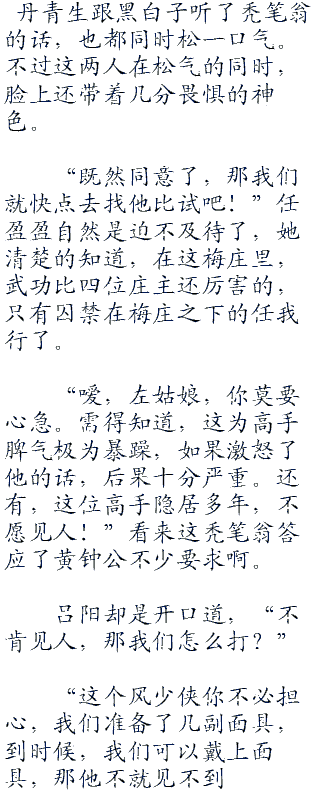 丹青生跟黑白子听了秃笔翁
的话，也都同时松一口气。
不过这两人在松气的同时，
脸上还带着几分畏惧的神
色。
“既然同意了，那我们
就快点去找他比试吧！”任
盈盈自然是迫不及待了，她
清楚的知道，在这梅庄里，
武功比四位庄主还厉害的，
只有囚禁在梅庄之下的任我
行了。
“嗳，左姑娘，你莫要
心急。需得知道，这为高手
脾气极为暴躁，如果激怒了
他的话，后果十分严重。还
有，这位高手隐居多年，不
愿见人！”看来这秃笔翁答
应了黄钟公不少要求啊。
吕阳却是开口道，“不
肯见人，那我们怎么打？”
“这个风少侠你不必担
心，我们准备了几副面具，
到时候，我们可以戴上面
具，那他不就见不到